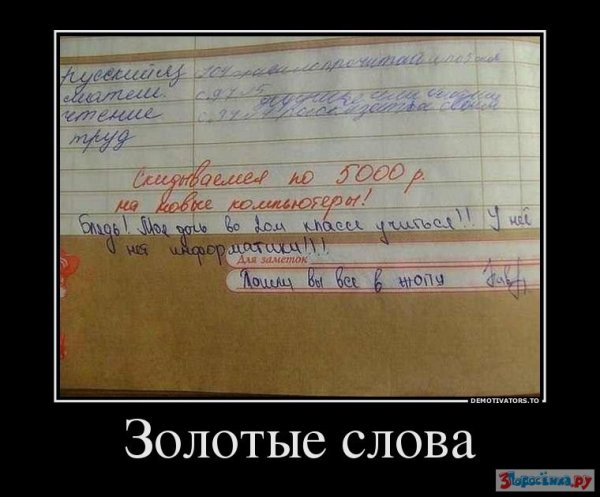 Русский яз 104 правило прочитать и
матем. с.97 №5
чтение с.
труд
Скидываемся по 5000 р.
на новые компьютеры!
Блядь! Моя дочь во 2ом классе учиться!! У неё
нет информатики!!!
Для заметок
Пошли вы все в жопу
DEMOTIVATORS.TO
Золотые слова
3Поросёнка.ру